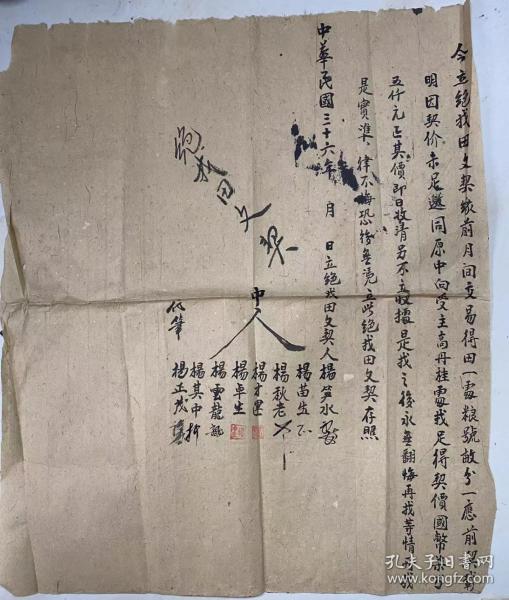 今立絕找田文契緣前月间交易得田一處粮號畝分一應前契載
明因契价未足邀同原中向受主高丹桂處找足得契價國幣
五仟元正其價即日收清另不立收據是找之後永無翻悔再找等情
是實準一律不悔恐後無凭立此絕找田文契存照
中華民國三十六年 月 日立絕找田文契人楊芦水
楊苗生
楊秋老
中人 楊才
楊卓生
楊雲龍
楊其中
代筆 楊正茂
絕找田文契
孔夫子旧书网
www.kongfz.com